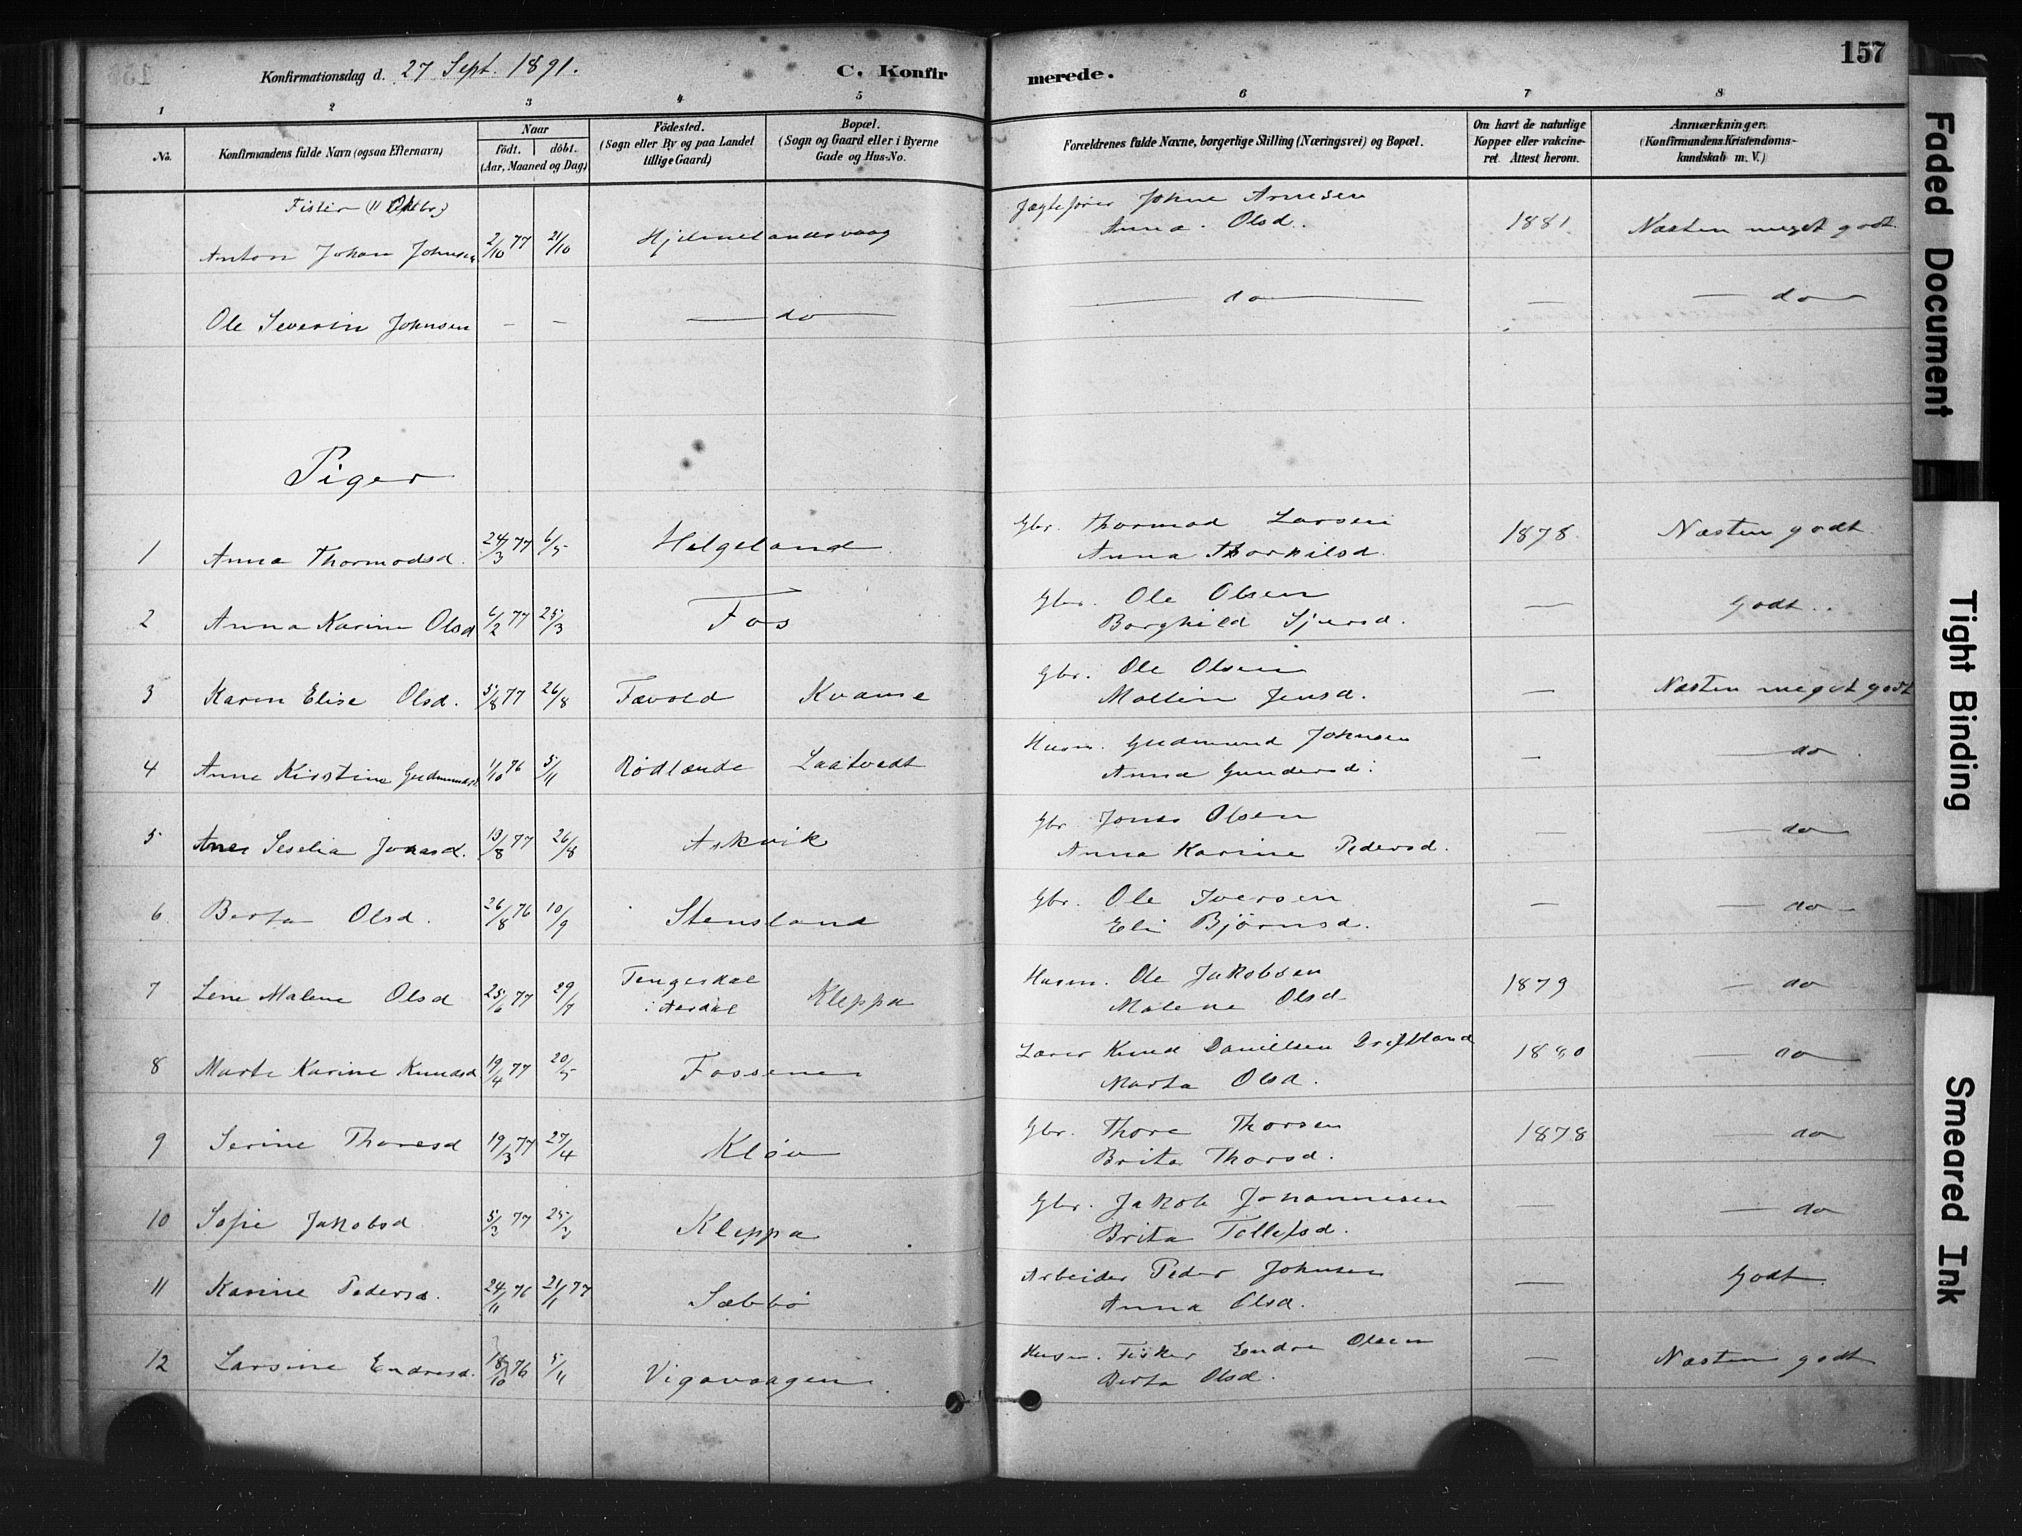 157
Konfirmationsdag d. 27 Sept. 1891.
C. Konfirmerede.
1 2 3 4 5 6 7 8
No.
Konfirmandens fulde Navn (ogsaa Efternavn)
Naar
födt. döbt.
(Aar, Maaned og Dag)
Födested.
(Sogn eller By og paa Landet
tillige Gaard)
Bopæl.
(Sogn og Gaard eller i Byerne
Gade og Hus-No.
Forældrenes fulde Navne, borgerlige Stilling (Næringsvei) og Bopæl.
Om havt de naturlige
Kopper eller vakcine-
ret. Attest herom.
Anmærkninger.
(Konfirmandens Kristendoms-
kundskab m. V.)
Fister (11 Oktbr.)
Anton Johan Johnsen 2/10 77 21/10 Hjelmelandsvaag Jægtefører Johne Arnesen 1881 Næsten meget godt
Anna Olsd.
Ole Severin Johnsen – – — do — — do — — — do —
Piger
1 Anna Thormodsd. 24/3 77 6/5 Helgeland Gbr. Thormod Larsen 1878 Næsten godt
Anna Thorkilsd.
2 Anna Karine Olsd 6/2 77 25/3 Fos Gbr. Ole Olsen — Godt.
Borghild Sjursd.
3 Karen Elise Olsd. 5/8 77 26/8 Fævold Kvame Gbr. Ole Olsen — Næsten meget godt
Mallin Jensd.
4 Anne Kirstine Gudmunds 1/10 76 5/11 Rødlande Laatvedt Husm. Gudmund Johnsen — — do
Anna Gundersd.
5 Anne Seselia Jonasd. 13/8 77 26/8 Askvik Gbr Jonas Olsen — — do
Anna Karine Pedersd.
6 Berta Olsd. 26/8 76 10/9 Stensland Gbr. Ole Iversen — — do —
Eli Bjørnsd.
7 Lene Malene Olsd 25/6 77 29/7 Tengesdal Kleppa Husm. Ole Jakobsen 1879 — do
i Aardal Malene Olsd
8 Marte Karine Knudsd 19/4 77 20/5 Fossene Lærer Knud Danielsen Drefland 1880 — do
Marta Olsd.
9 Serine Thoresd 19/3 77 27/4 Kløv Gbr. Thore Thorsen 1878 — do
Brita Thorsd.
10 Sofie Jakobsd 5/3 77 25/3 Kleppa Gbr. Jakob Johannesen — — do
Brita Tollefsd.
11 Karine Pedersd. 24/11 76 21/1 77 Sæbbø Arbeider Peder Johnsen — Godt.
Anna Olsd.
12 Larsine Endresd. 18/10 76 5/11 Vigavaagen. Husm. Fisker Endre Olsen — Næsten godt
Berta Olsd.
Faded Document
Tight Binding
Smeared Ink